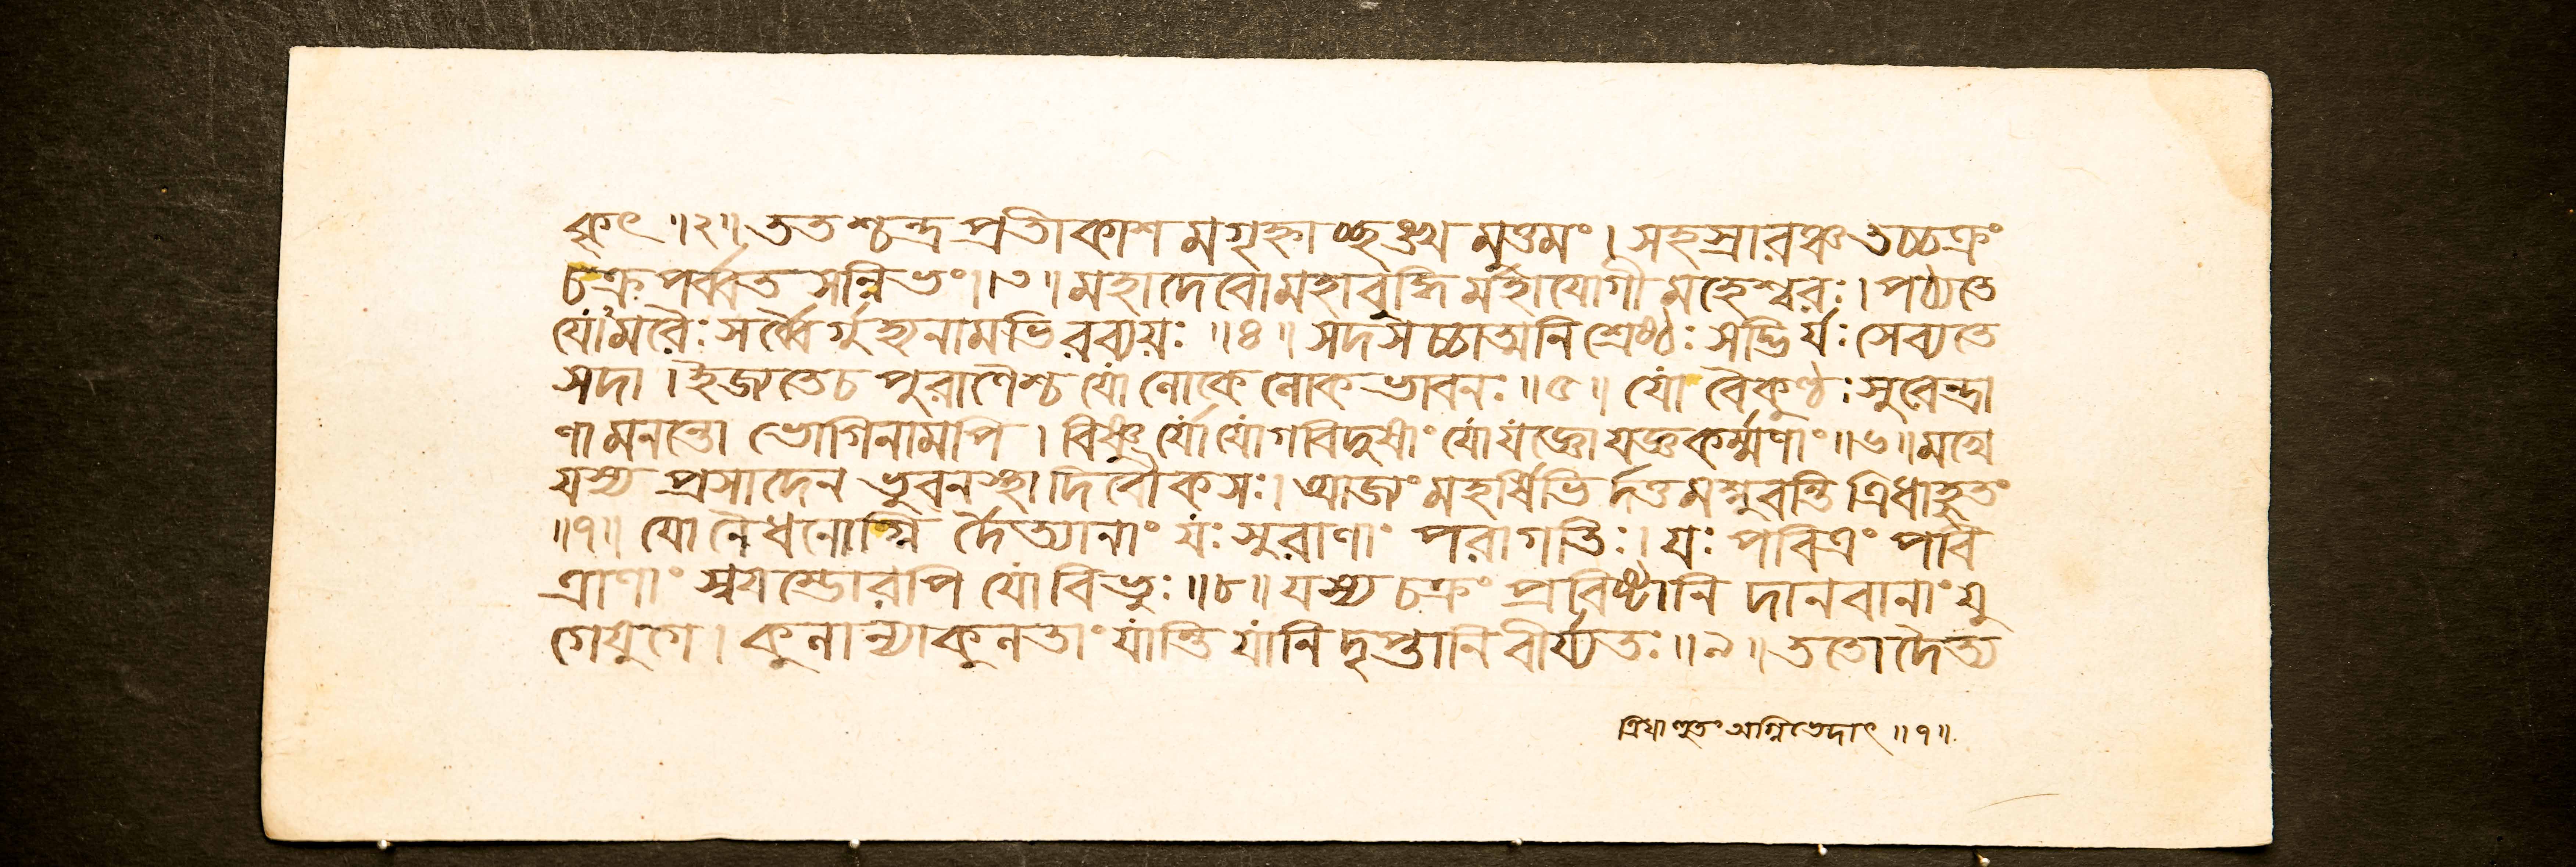 কৃৎ ॥২॥ ততশ্চন্দ্রপ্রতীকাশমগৃহ্নাচ্ছঙ্খমুত্তমং । সহস্রারঞ্চ তচ্চক্রং
চক্রপর্ব্বতসন্নিভং ॥৩॥ মহাদেবো মহাবুদ্ধির্মহাযোগী মহেশ্বরঃ । পঠ্যতে
যোমরৈঃ সর্ব্বৈর্গুহ্যনামভিরব্যয়ঃ ॥৪॥ সদসচ্চাত্মনি শ্রেষ্ঠঃ সদ্ভির্যঃ সেব্যতে
সদা । ইজ্যতে চ পুরাণৈশ্চ যো লোকে লোকভাবনঃ ॥৫॥ যো বৈকুণ্ঠঃ সুরেন্দ্রা
ণামনন্তো ভোগিনামপি । বিষ্ণুর্যো যোগবিদুষাং যো যজ্ঞো যজ্ঞকর্ম্মণাং ॥৬॥ মখে
যস্য প্রসাদেন ভুবনস্থা দিবৌকসঃ । আজ্যং মহর্ষিভির্দত্তমশ্নুবন্তি ত্রিধাহুতং
॥৭॥ যো নৈধনোগ্নির্দৈত্যানাং যঃ সুরাণাং পরা গতিঃ । যঃ পবিত্রং পবি
ত্রাণাং স্বয়ম্ভোরপি যো বিভুঃ ॥৮॥ যস্য চক্রং প্রবিষ্টানি দানবানাং যু
গে যুগে । কুলান্যাকুলতাং যান্তি যানি দৃপ্তানি বীর্য্যতঃ ॥৯॥ ততো দৈত্য
ত্রিধাহুতং অগ্নিভেদাৎ ॥৭॥